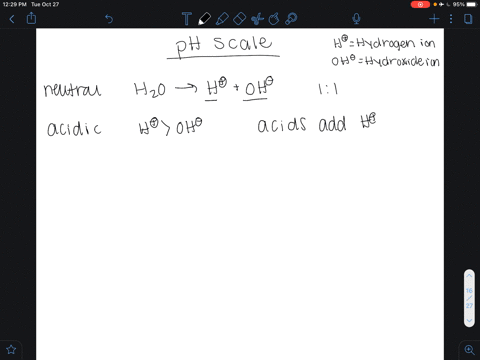 12:29 PM Tue Oct 27
95%
pH scale
H⊕ = Hydrogen ion
OH⊖ = Hydroxide ion
neutral H₂O → H⊕ + OH⊖ 1:1
acidic H⊕ > OH⊖ acids add H⊕
16
/
27